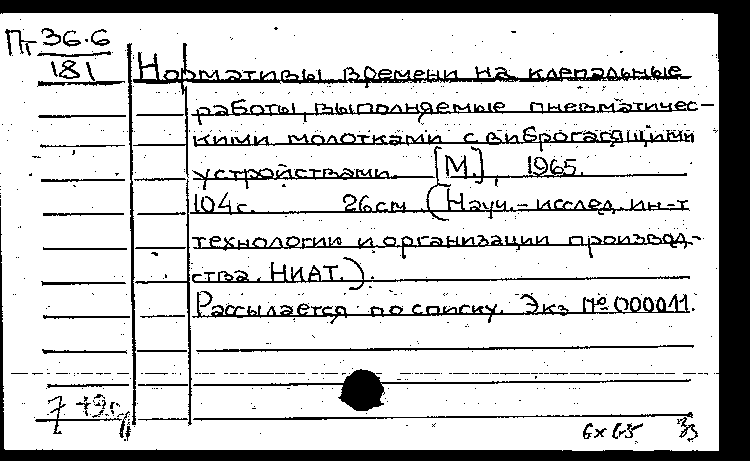 Пт 36.6
181
Нормативы времени на клепальные
работы, выполняемые пневматичес-
кими молотками с виброгасящими
устройствами. [М.], 1965.
104 с. 26 см (Науч.-исслед. ин-т
технологии и организации производ-
ства. НИАТ.).
Рассылается по списку. Экз №000011.